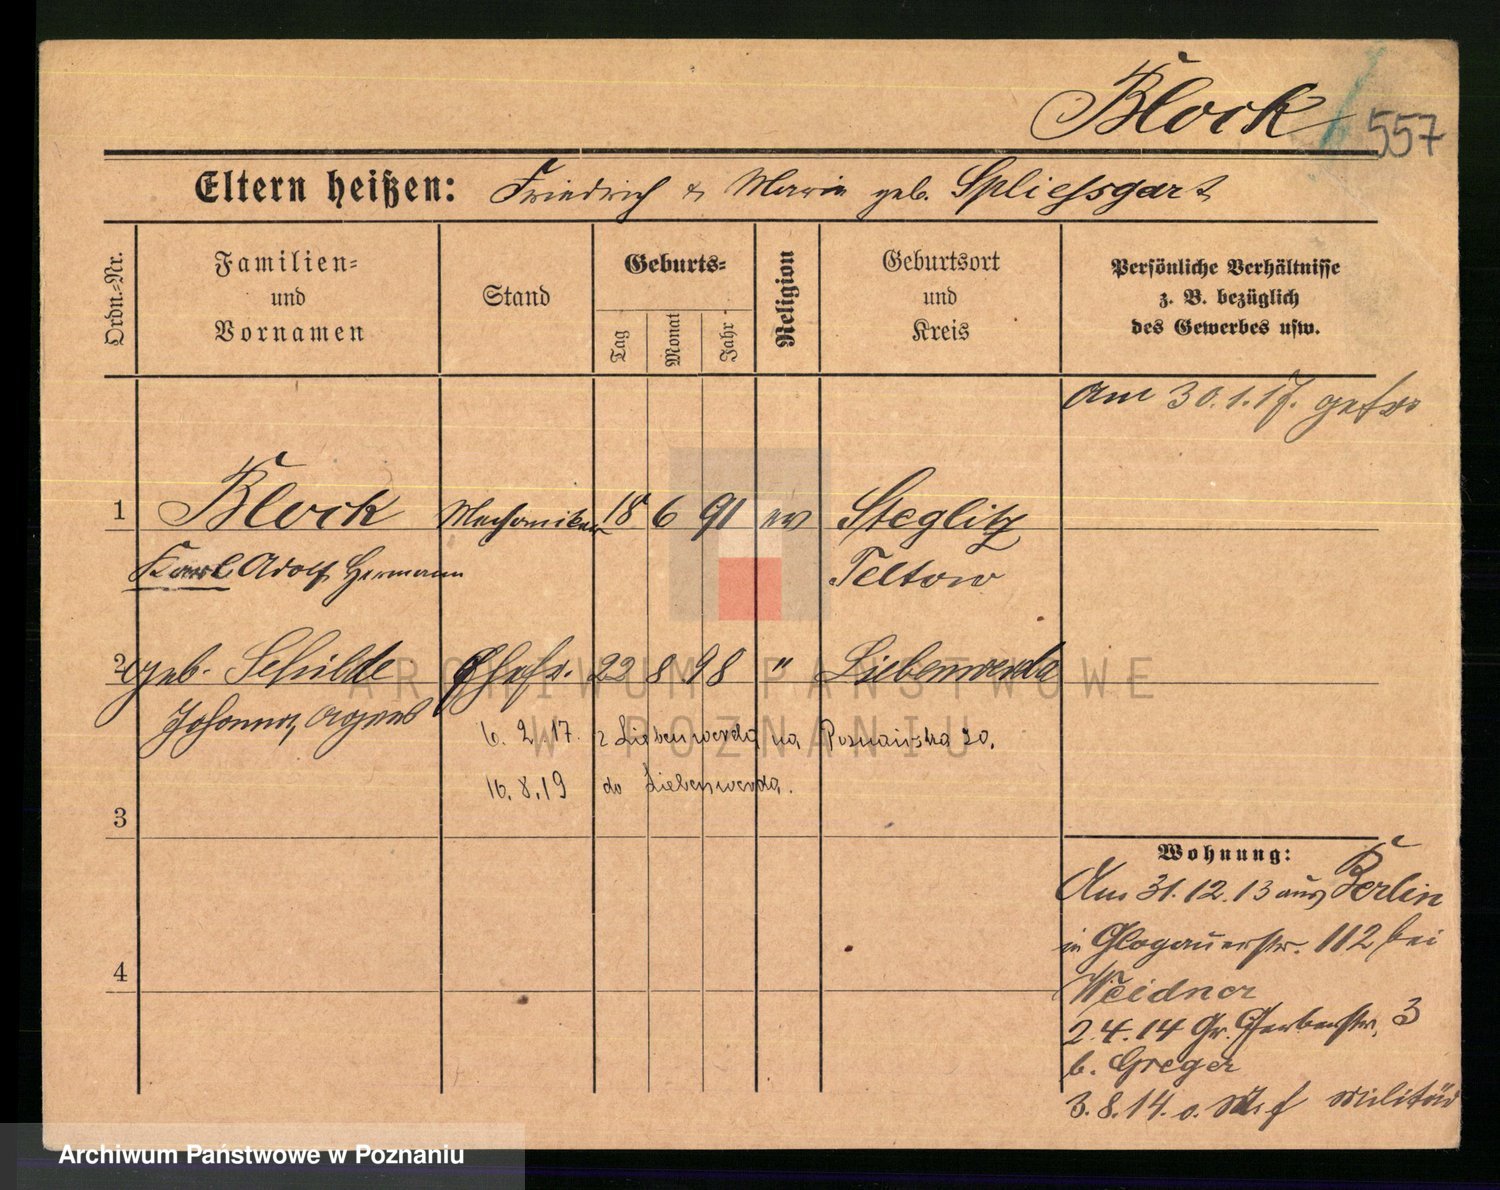 Block
557
Eltern heißen: Friedrich & Maria geb. Spliessgart
Ordn.-Nr.
Familien- und Vornamen
Stand
Geburts-
Tag
Monat
Jahr
Religion
Geburtsort und Kreis
Persönliche Verhältnisse
z. B. bezüglich
des Gewerbes usw.
Am 30.1.17. getr
1 Block Mechaniker 18 6 91 ev Steglitz
Karl Adolf Hermann Teltow
2 geb. Schulde Ehefr. 22 8 98 " Liebenwerda
Johanna, Agnes
6. 2. 17. z Liebenwerda na Poznańska 20.
16. 8. 19 do Liebenwerda.
3
4
Wohnung:
Am 31.12.13 aus Berlin
in Glogauerstr. 112 bei
Weidner
2.4.14 Gr. Gerberstr. 3
b. Greger
3.8.14. Militär
ARCHIWUM PAŃSTWOWE
W POZNANIU
Archiwum Państwowe w Poznaniu